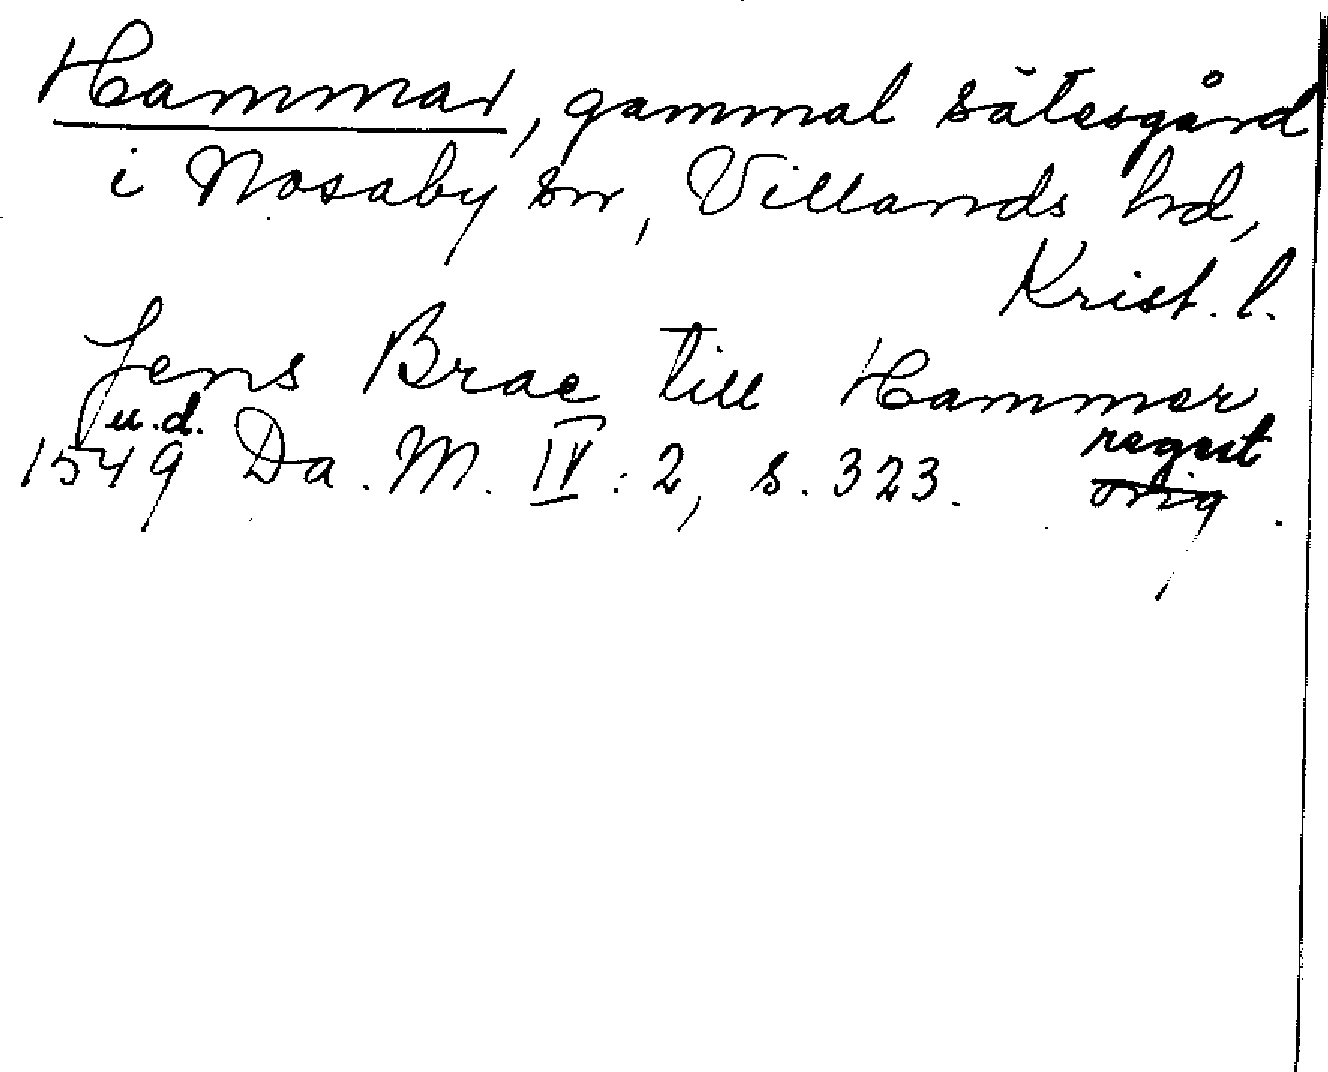 Hammar, gammal sätesgård
i Nosaby sn, Villands hd,
Krist. l.
Jens Brae till Hammer
u.d. regest
1549 Da. M. IV : 2, s. 323. orig.